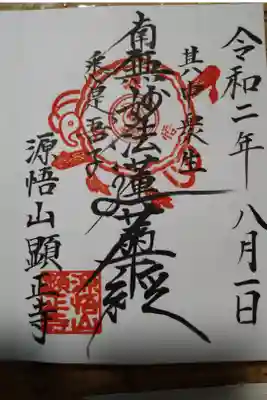 令和二年 八月一日
其中衆生
南無妙法蓮華経
悉是吾子
源悟山顕正寺